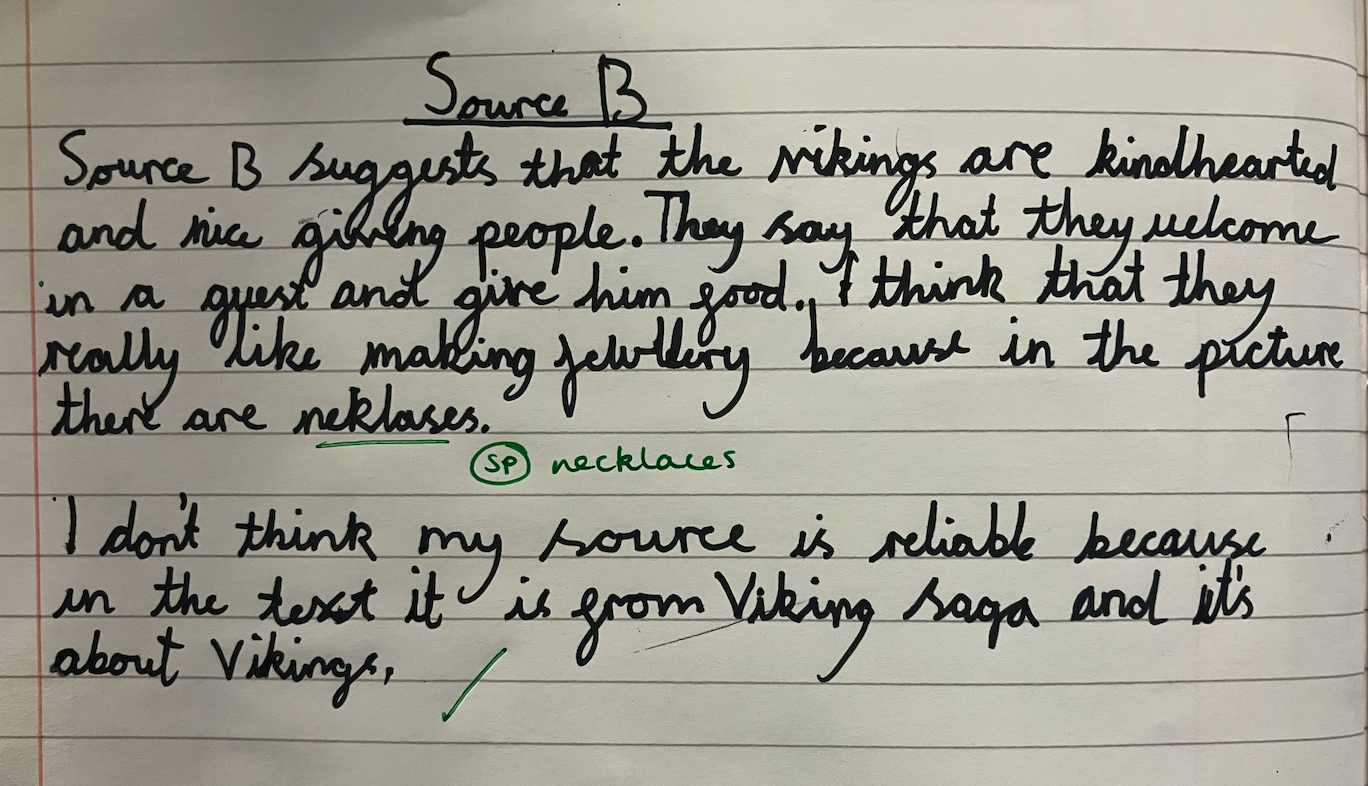 Source B
Source B suggests that the vikings are kindhearted
and nice giving people. They say that they welcome
in a guest and give him food. I think that they
really like making jewllery because in the picture
there are neklases.
SP necklaces
I don't think my source is reliable because
in the text it is from Viking saga and it's
about Vikings.